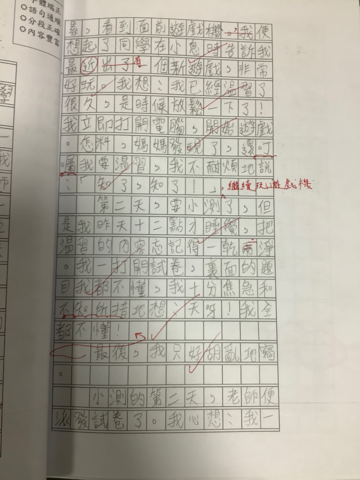 是，看到面前遊戲機，我便
想起了同學在小息時告訴我
最近出了一個新遊戲，非常
好玩。我想：我已經溫習了
很久，是時候放鬆一下了！
我立即打開電腦，開始遊戲
。怎料，媽媽發現了，還叮
囑我要溫習，我不耐煩地說
：「知了，知了！」。繼續玩遊戲機
第二天，要小測了，但
是我昨天十二點才睡覺，把
溫習的內容忘記得一乾兩淨
。我一打開試卷，裏面的題
目我都不懂，我十分焦急和
不知所措地想：天呀！我全
都不懂！
最後，我只好胡亂地填
。
小測的第二天，老師便
派發試卷了。我心想：我一
字體端正
語句通順
分段正確
內容豐富